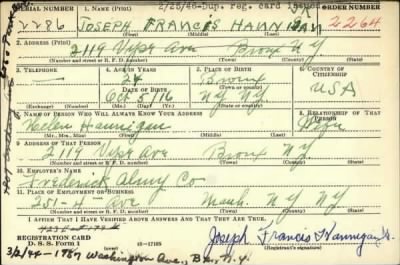 2/25/46-Dup. reg. card issued
SERIAL NUMBER 1. NAME (Print) ORDER NUMBER
2286 JOSEPH FRANCIS HANNIGAN 2264
(First) (Middle) (Last)
2. ADDRESS (Print)
2119 Vyse Ave Bronx N Y
(Number and street or R. F. D. number) (Town) (County) (State)
3. TELEPHONE 4. AGE IN YEARS 5. PLACE OF BIRTH 6. COUNTRY OF CITIZENSHIP
24 Bronx
DATE OF BIRTH (Town or county)
Oct 5/16 N.Y. USA
(Exchange) (No.) (Mo.) (Day) (Yr.) (State or country)
7. NAME OF PERSON WHO WILL ALWAYS KNOW YOUR ADDRESS 8. RELATIONSHIP OF THAT PERSON
Helen Hannigan Wife
(Mr., Mrs., Miss) (First) (Middle) (Last)
9. ADDRESS OF THAT PERSON
2119 Vyse Ave Bronx N.Y.
(Number and street or R. F. D. number) (Town) (County) (State)
10. EMPLOYER'S NAME
Frederick Co
11. PLACE OF EMPLOYMENT OR BUSINESS
251-4th Ave Manh. N Y N Y
(Number and street or R. F. D. number) (Town) (County) (State)
I AFFIRM THAT I HAVE VERIFIED ABOVE ANSWERS AND THAT THEY ARE TRUE.
REGISTRATION CARD
D. S. S. Form 1 16-17105 Joseph Francis Hannigan Jr.
(Registrant's signature)
Washington Ave., Bx., N.Y.